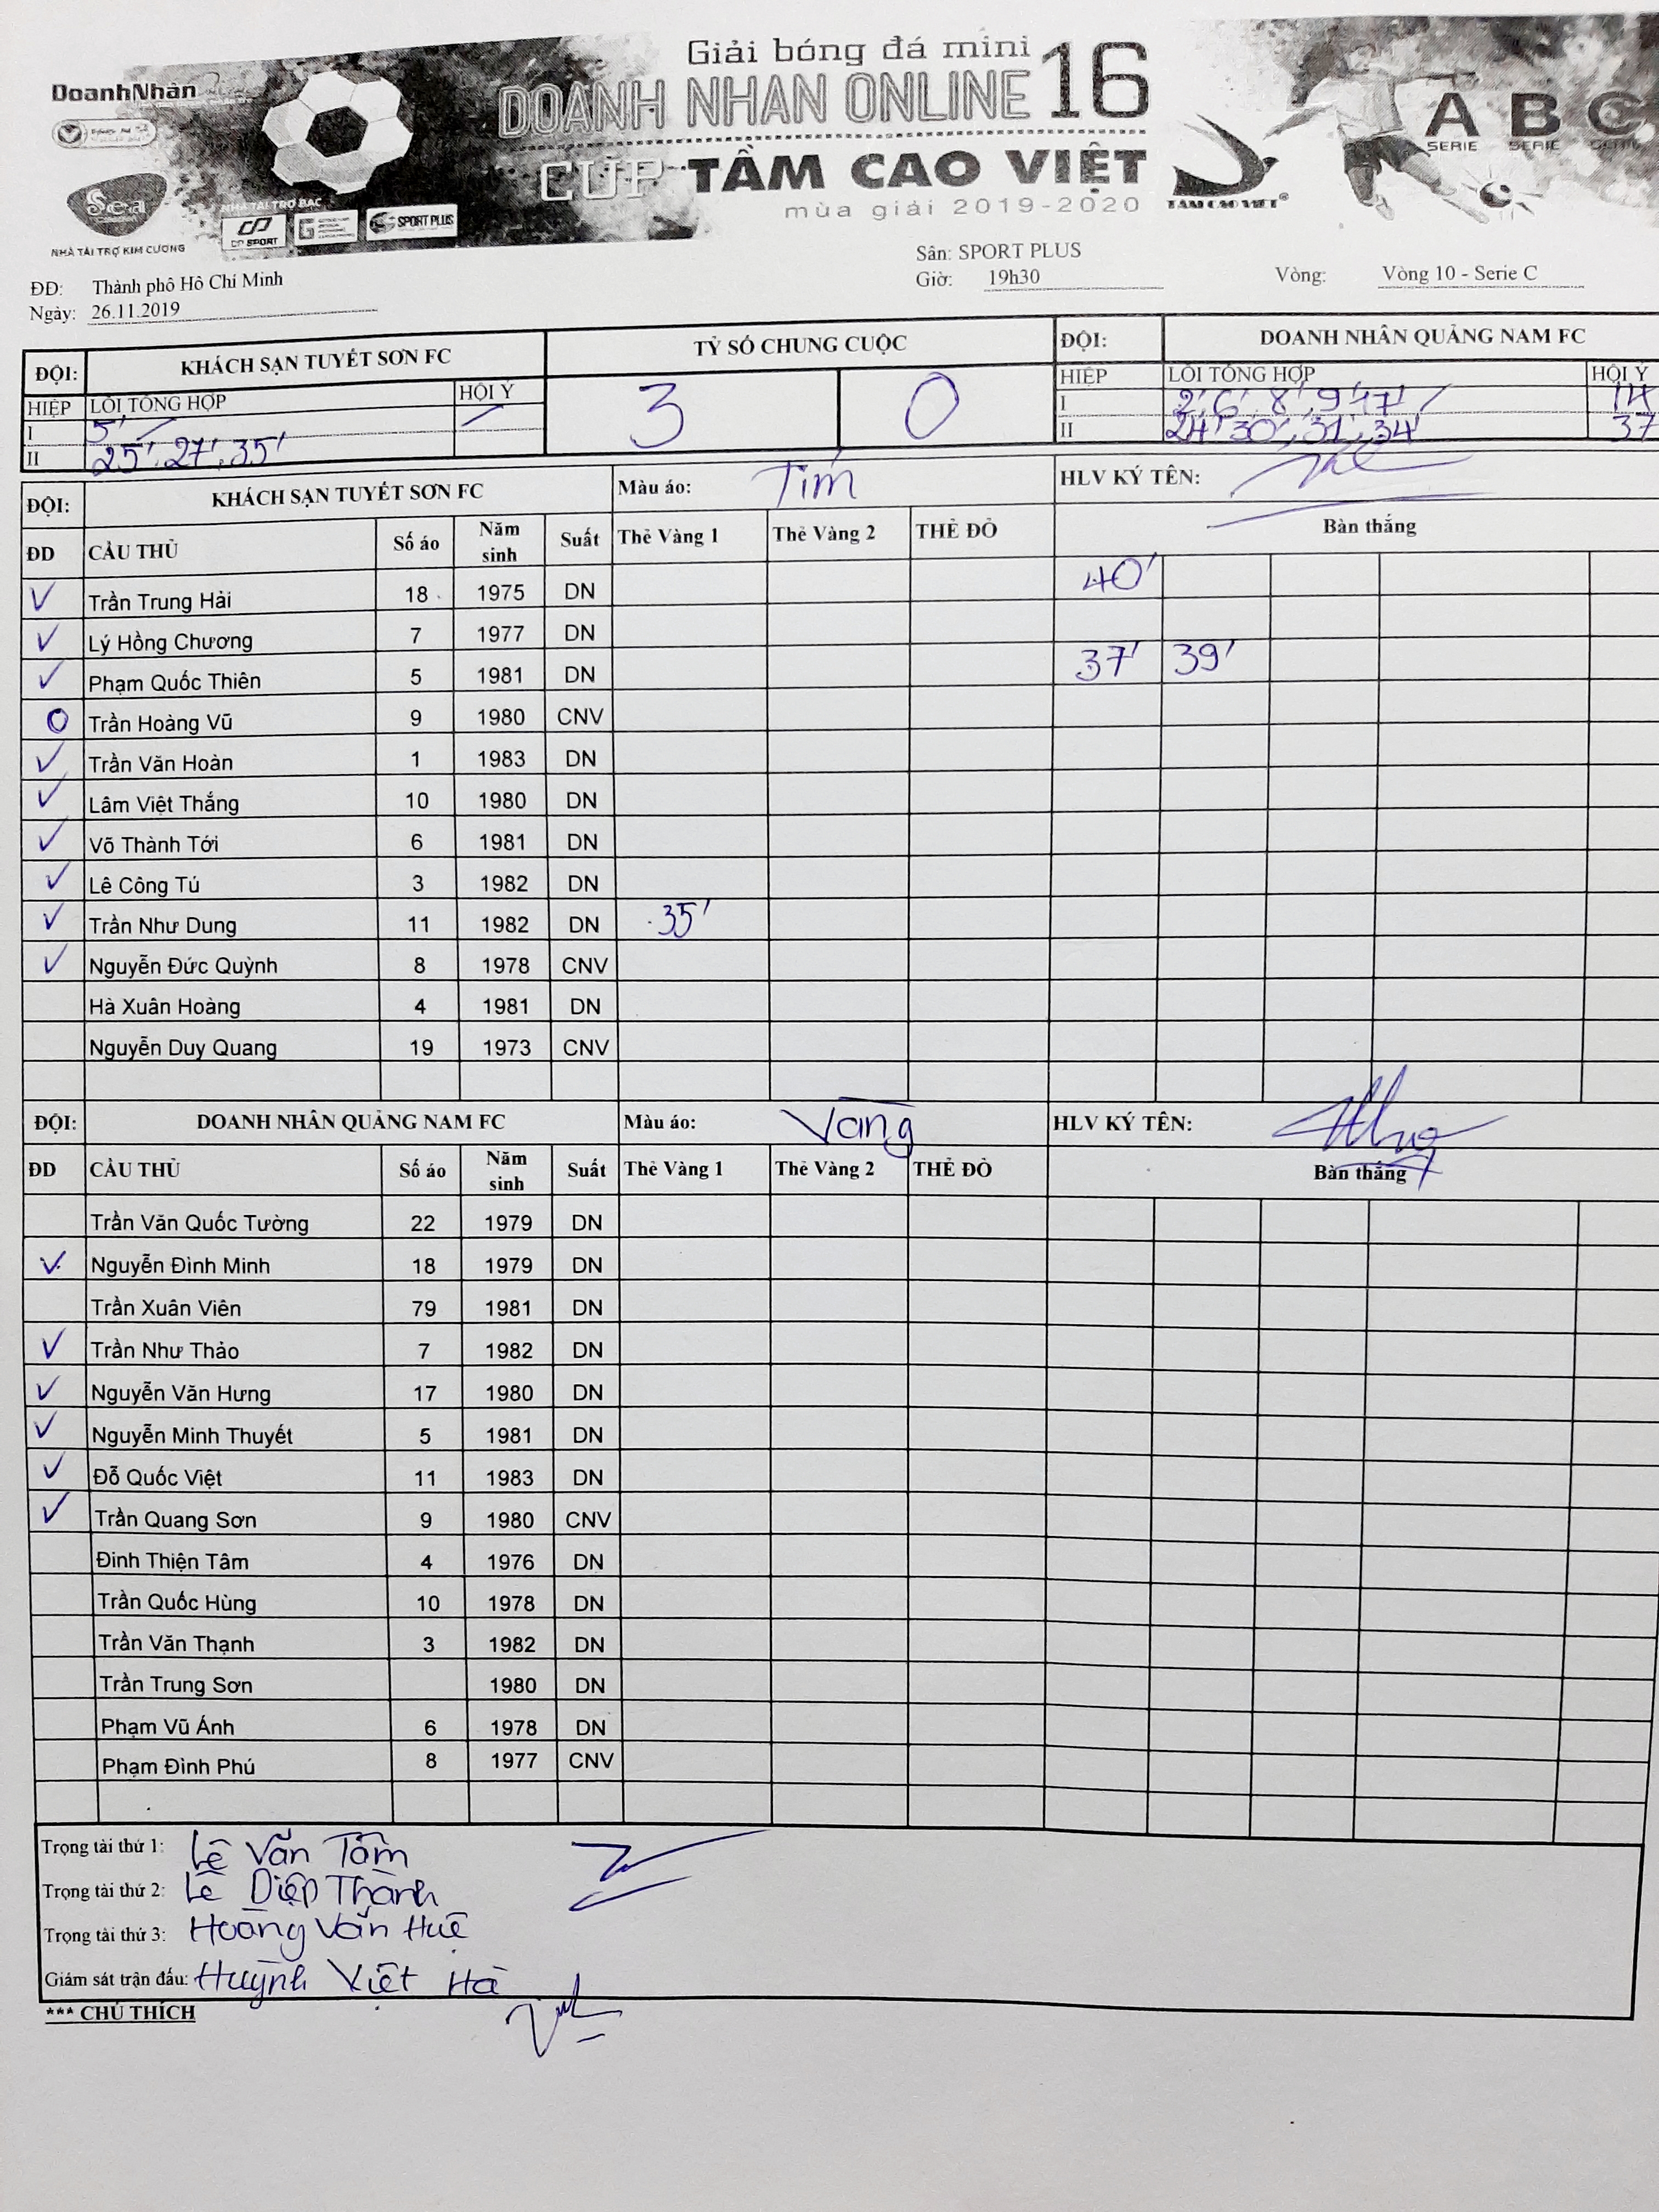 Giải bóng đá mini
DOANH NHAN ONLINE 16
CUP TẦM CAO VIỆT
mùa giải 2019-2020
DoanhNhân
Sea
NHÀ TÀI TRỢ KIM CƯƠNG
NHÀ TÀI TRỢ BẠC
CP SPORT
SPORT PLUS
TẦM CAO VIỆT®
A B C
SERIE SERIE SERIE
ĐĐ: Thành phố Hồ Chí Minh
Ngày: 26.11.2019
Sân: SPORT PLUS
Giờ: 19h30
Vòng: Vòng 10 - Serie C
ĐỘI: KHÁCH SẠN TUYẾT SƠN FC TỶ SỐ CHUNG CUỘC ĐỘI: DOANH NHÂN QUẢNG NAM FC
HIỆP LỖI TỔNG HỢP HỘI Ý 3 0 HIỆP LỖI TỔNG HỢP HỘI Ý
I 5' I 2', 6', 8', 9' 17' 14
II 25', 27', 35' II 24' 30', 31', 34' 37
ĐỘI: KHÁCH SẠN TUYẾT SƠN FC Màu áo: Tím HLV KÝ TÊN:
ĐD CẦU THỦ Số áo Năm sinh Suất Thẻ Vàng 1 Thẻ Vàng 2 THẺ ĐỎ Bàn thắng
V Trần Trung Hải 18 1975 DN 40'
V Lý Hồng Chương 7 1977 DN
V Phạm Quốc Thiên 5 1981 DN 37' 39'
O Trần Hoàng Vũ 9 1980 CNV
V Trần Văn Hoàn 1 1983 DN
V Lâm Việt Thắng 10 1980 DN
V Võ Thành Tới 6 1981 DN
V Lê Công Tú 3 1982 DN
V Trần Như Dung 11 1982 DN 35'
V Nguyễn Đức Quỳnh 8 1978 CNV
Hà Xuân Hoàng 4 1981 DN
Nguyễn Duy Quang 19 1973 CNV
ĐỘI: DOANH NHÂN QUẢNG NAM FC Màu áo: Vàng HLV KÝ TÊN:
ĐD CẦU THỦ Số áo Năm sinh Suất Thẻ Vàng 1 Thẻ Vàng 2 THẺ ĐỎ Bàn thắng
Trần Văn Quốc Tường 22 1979 DN
V Nguyễn Đình Minh 18 1979 DN
Trần Xuân Viên 79 1981 DN
V Trần Như Thảo 7 1982 DN
V Nguyễn Văn Hưng 17 1980 DN
V Nguyễn Minh Thuyết 5 1981 DN
V Đỗ Quốc Việt 11 1983 DN
V Trần Quang Sơn 9 1980 CNV
Đinh Thiện Tâm 4 1976 DN
Trần Quốc Hùng 10 1978 DN
Trần Văn Thạnh 3 1982 DN
Trần Trung Sơn 1980 DN
Phạm Vũ Ánh 6 1978 DN
Phạm Đình Phú 8 1977 CNV
Trọng tài thứ 1: Lê Văn Tâm
Trọng tài thứ 2: Lê Diệp Thành
Trọng tài thứ 3: Hoàng Văn Huê
Giám sát trận đấu: Huỳnh Việt Hà
*** CHÚ THÍCH